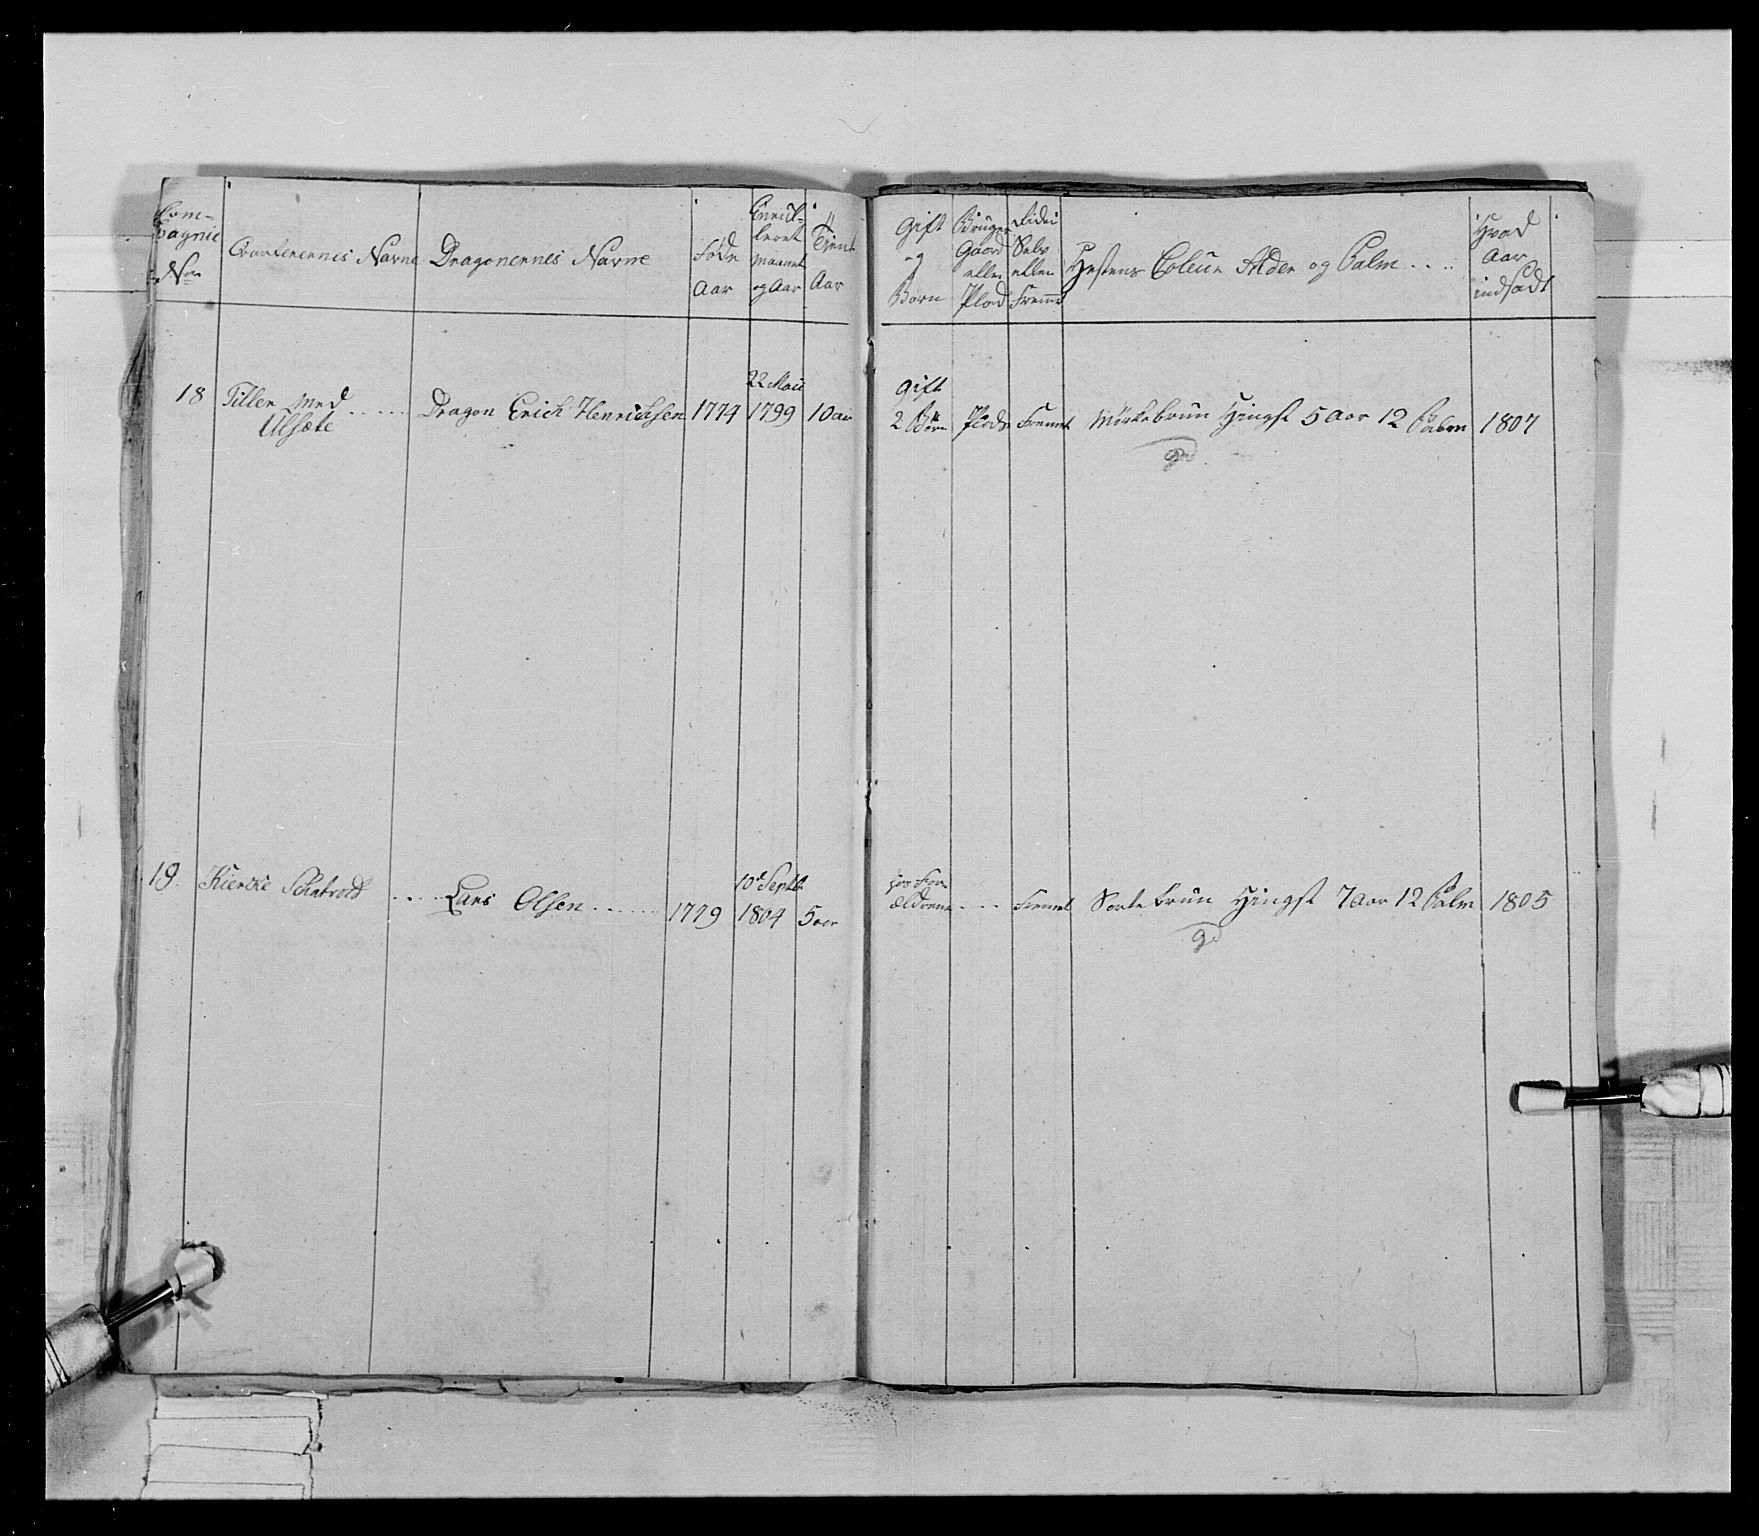 Com-
pagnie
No
Qvarterernis Navne
Dragonernes Navne
Føde
Aar
Enrul-
leret
Maanet
og Aar
Tient
Aar
Gift
og
Børn
Bruger
Gaard
eller
Plads
Ridei
Selv
eller
Fremt
Hestens Coleur Alder og Palm ....
Hvad
Aar
indsadt
18 Tiller Med
Ulsæte ..... Dragon Erich Henrichsen 1774 22 Maii 1799 10 aar
Gift
2 Børn Plads Fremt Mörkebrun Hingst 5 Aar 12 Palm 1807
gd
19. Kierkie Schatvold .... Lars Olsen ...... 1779 10d Septb 1804 5 aar
hos For-
ældrene .... Fremt Sortebrun Hingst 7 Aar 12 Palm 1805
gd